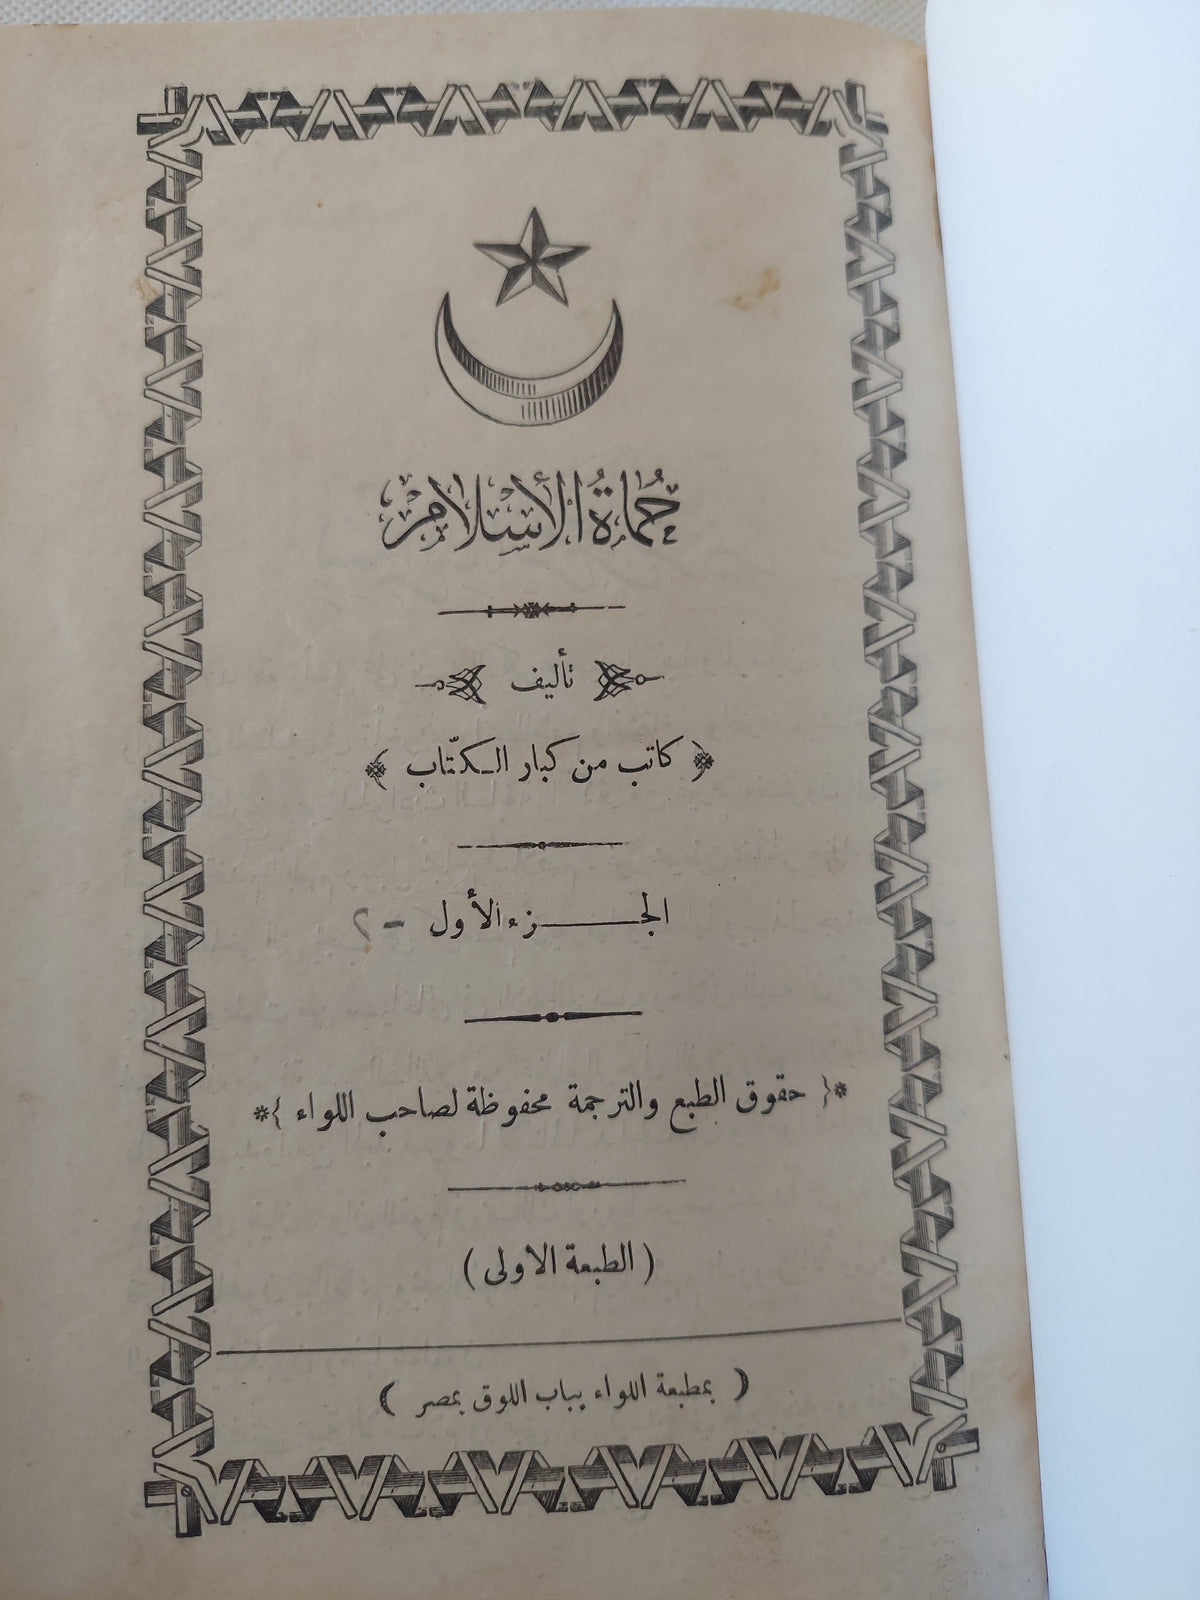 حُماةُ الأسلام
تأليف
﴿ كاتب من كبار الكتّاب ﴾
الجزء الأول - ٢
*{ حقوق الطبع والترجمة محفوظة لصاحب اللواء }*
( الطبعة الاولى )
( بمطبعة اللواء بباب اللوق بمصر )